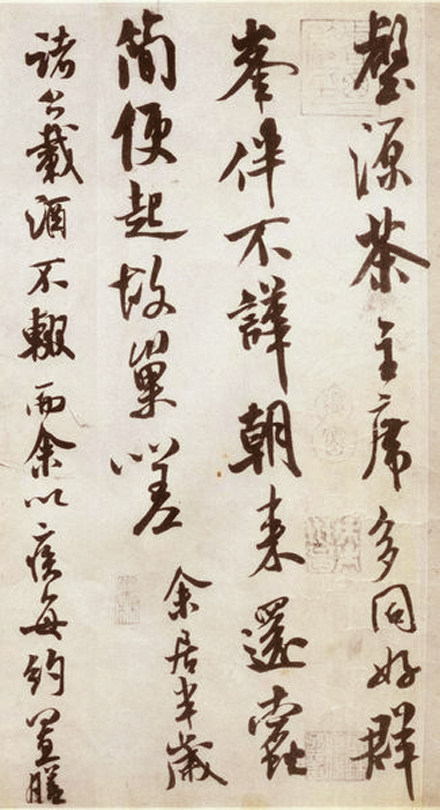 壑源茶主席多同好群
峯伴不譁朝来還蠹
簡便起故巢嗟
余居半歲
諸公載酒不輟而余以疾每約置膳